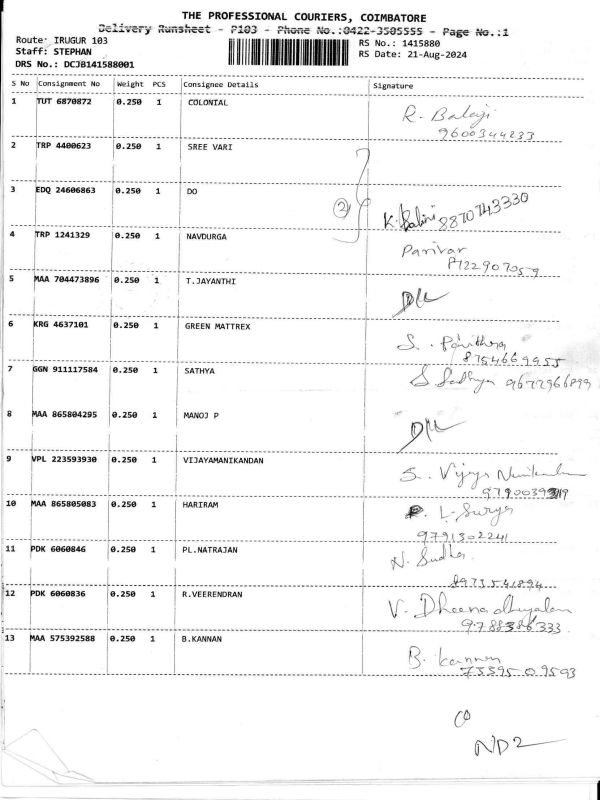 THE PROFESSIONAL COURIERS, COIMBATORE
Delivery Runsheet - P103 - Phone No.:0422-3505555 - Page No.:1
Route: IRUGUR 103
RS No.: 1415880
Staff: STEPHAN
RS Date: 21-Aug-2024
DRS No.: DCJB141588001
S No Consignment No Weight PCS Consignee Details Signature
1 TUT 6870872 0.250 1 COLONIAL R. Balaji
9600344233
2 TRP 4400623 0.250 1 SREE VARI
3 EDQ 24606863 0.250 1 DO
2 K. 8870743330
4 TRP 1241329 0.250 1 NAVDURGA Parivar
5 MAA 704473896 0.250 1 T.JAYANTHI D/L
6 KRG 4637101 0.250 1 GREEN MATTREX S. Pavithra
8754669955
7 GGN 911117584 0.250 1 SATHYA S. Sathya 9677966899
8 MAA 865804295 0.250 1 MANOJ P D/L
9 VPL 223593930 0.250 1 VIJAYAMANIKANDAN S. Vijaya
10 MAA 865805083 0.250 1 HARIRAM L. Surya
9791302241
11 PDK 6060846 0.250 1 PL.NATRAJAN N. Sudha
8973541894
12 PDK 6060836 0.250 1 R.VEERENDRAN V. Dheenadhayalan
9788386333
13 MAA 575392588 0.250 1 B.KANNAN B. Kannan
7339509593
ND2